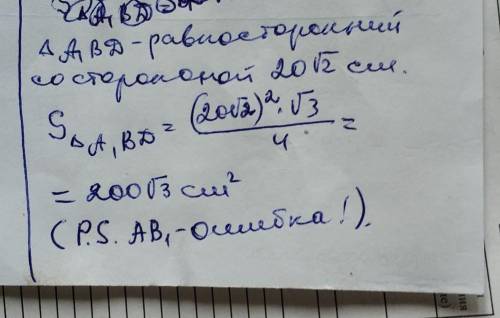 △A₁BD-равносторонний
со стороной 20√2 см.
S△A₁BD = (20√2)²·√3 / 4 =
= 200√3 см²
(P.S. AB₁-ошибка!).